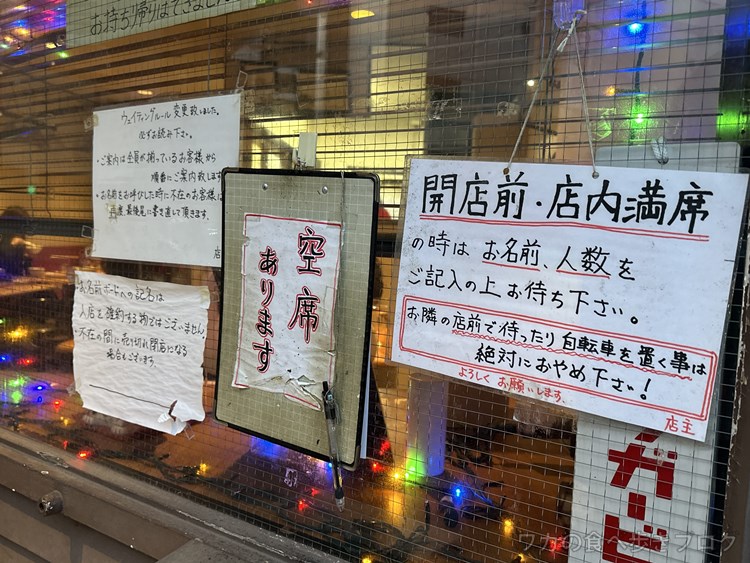 お持ち帰りはできません
ウェイティングルール変更致しました。
必ずお読み下さい。
・ご案内は全員が揃っているお客様から
順番にご案内致します
・お名前をお呼びした時に不在のお客様は
再度最後尾に書き直して頂きます。
店
お名前ボードへの記名は
入店を確約する物ではございません。
不在の間に売り切れ閉店になる
場合もございます。
空席
あります
開店前・店内満席
の時は お名前、人数を
ご記入の上お待ち下さい。
お隣の店前で待ったり自転車を置く事は
絶対におやめ下さい!
よろしくお願いします。
店主
ワカの食べ歩きブログ